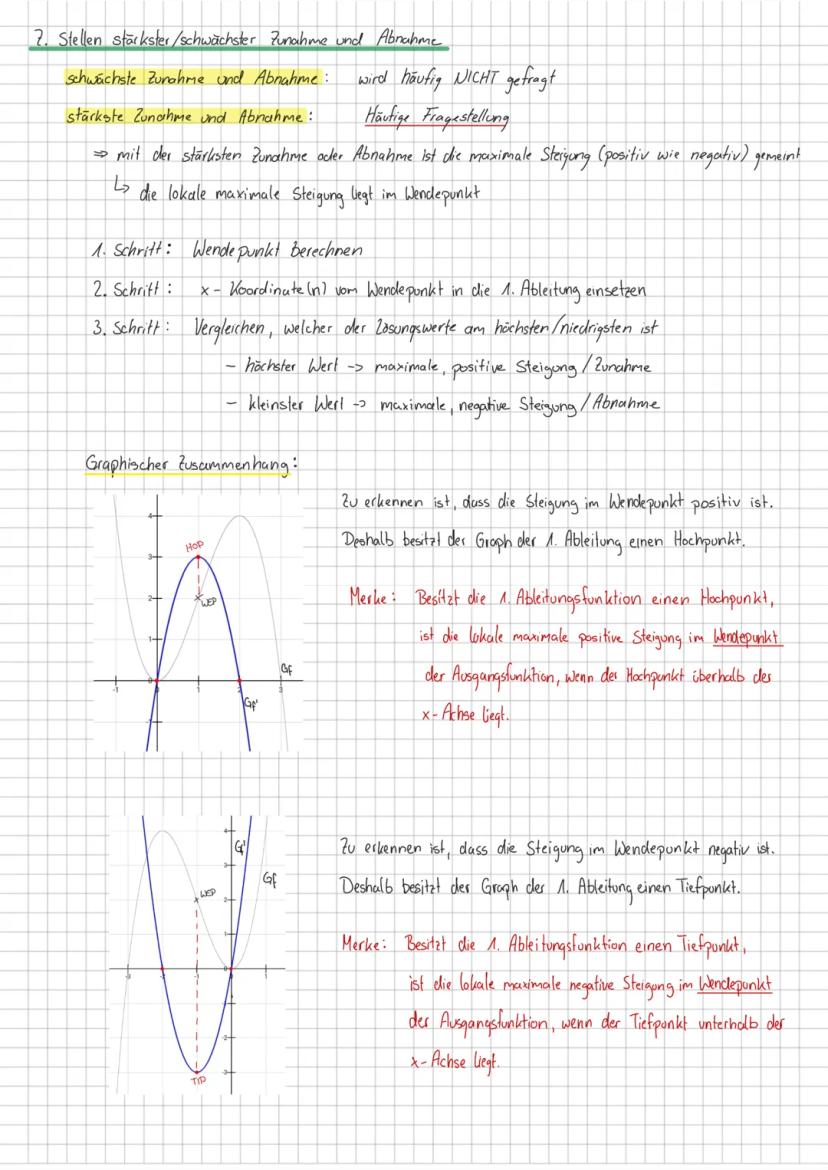 7. Stellen stärkster/schwächster Zunahme und Abnahme
schwächste Zunahme und Abnahme: wird häufig NICHT gefragt
stärkste Zunahme und Abnahme: Häufige Fragestellung
⇒ mit der stärksten Zunahme oder Abnahme ist die maximale Steigung (positiv wie negativ) gemeint
↳ die lokale maximale Steigung liegt im Wendepunkt
1. Schritt: Wendepunkt berechnen
2. Schritt: x-Koordinate(n) vom Wendepunkt in die 1. Ableitung einsetzen
3. Schritt: Vergleichen, welcher der Lösungswerte am höchsten/niedrigsten ist
- höchster Wert -> maximale, positive Steigung/Zunahme
- kleinster Wert -> maximale, negative Steigung/Abnahme
Graphischer Zusammenhang:
Zu erkennen ist, dass die Steigung im Wendepunkt positiv ist.
Deshalb besitzt der Graph der 1. Ableitung einen Hochpunkt.
Merke: Besitzt die 1. Ableitungsfunktion einen Hochpunkt,
ist die lokale maximale positive Steigung im Wendepunkt
der Ausgangsfunktion, wenn der Hochpunkt überhalb der
x-Achse liegt.
4
3
HOP
2
WEP
1
Gf
-1 0 1 2 3
Gf'
-1
Zu erkennen ist, dass die Steigung im Wendepunkt negativ ist.
Deshalb besitzt der Graph der 1. Ableitung einen Tiefpunkt.
Merke: Besitzt die 1. Ableitungsfunktion einen Tiefpunkt,
ist die lokale maximale negative Steigung im Wendepunkt
der Ausgangsfunktion, wenn der Tiefpunkt unterhalb der
x-Achse liegt.
4
Gf'
3
Gf
WEP
2
1
-3 -2 -1 0 1
-1
-2
-3
TIP